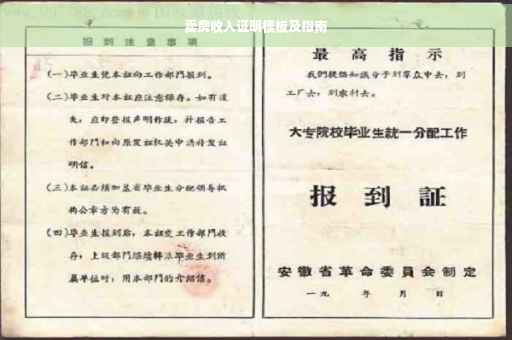 卖房收入证明模板及指南
报到注意事项
(一)毕业生凭本证向工作部门报到。
(二)毕业生对本证应注意保存。如有遗
失,应即登报声明作废,并报告工
作部门和向原发证机关申请补发证
明信。
(三)本证必须加盖省毕业生分配领导机
构公章方为有效。
(四)毕业生报到后,本证交工作部门收
存;上级部门继续转派毕业生到所
属单位时,用本部门的介绍信。
最高指示
我们提倡知识分子到群众中去,到
工厂去,到农村去。
大专院校毕业生統一分配工作
报到証
安徽省革命委員会制定
一九 年 月 日